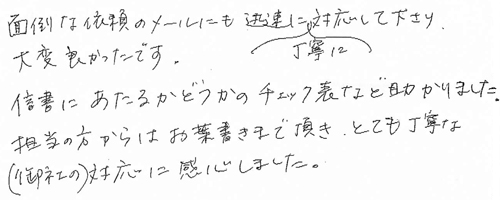 面倒な依頼のメールにも迅速に対応して下さり、
丁寧に
大変良かったです。
信書にあたるかどうかのチェック表など助かりました。
担当の方からはお葉書きまで頂き、とても丁寧な
(御社の)対応に感心しました。